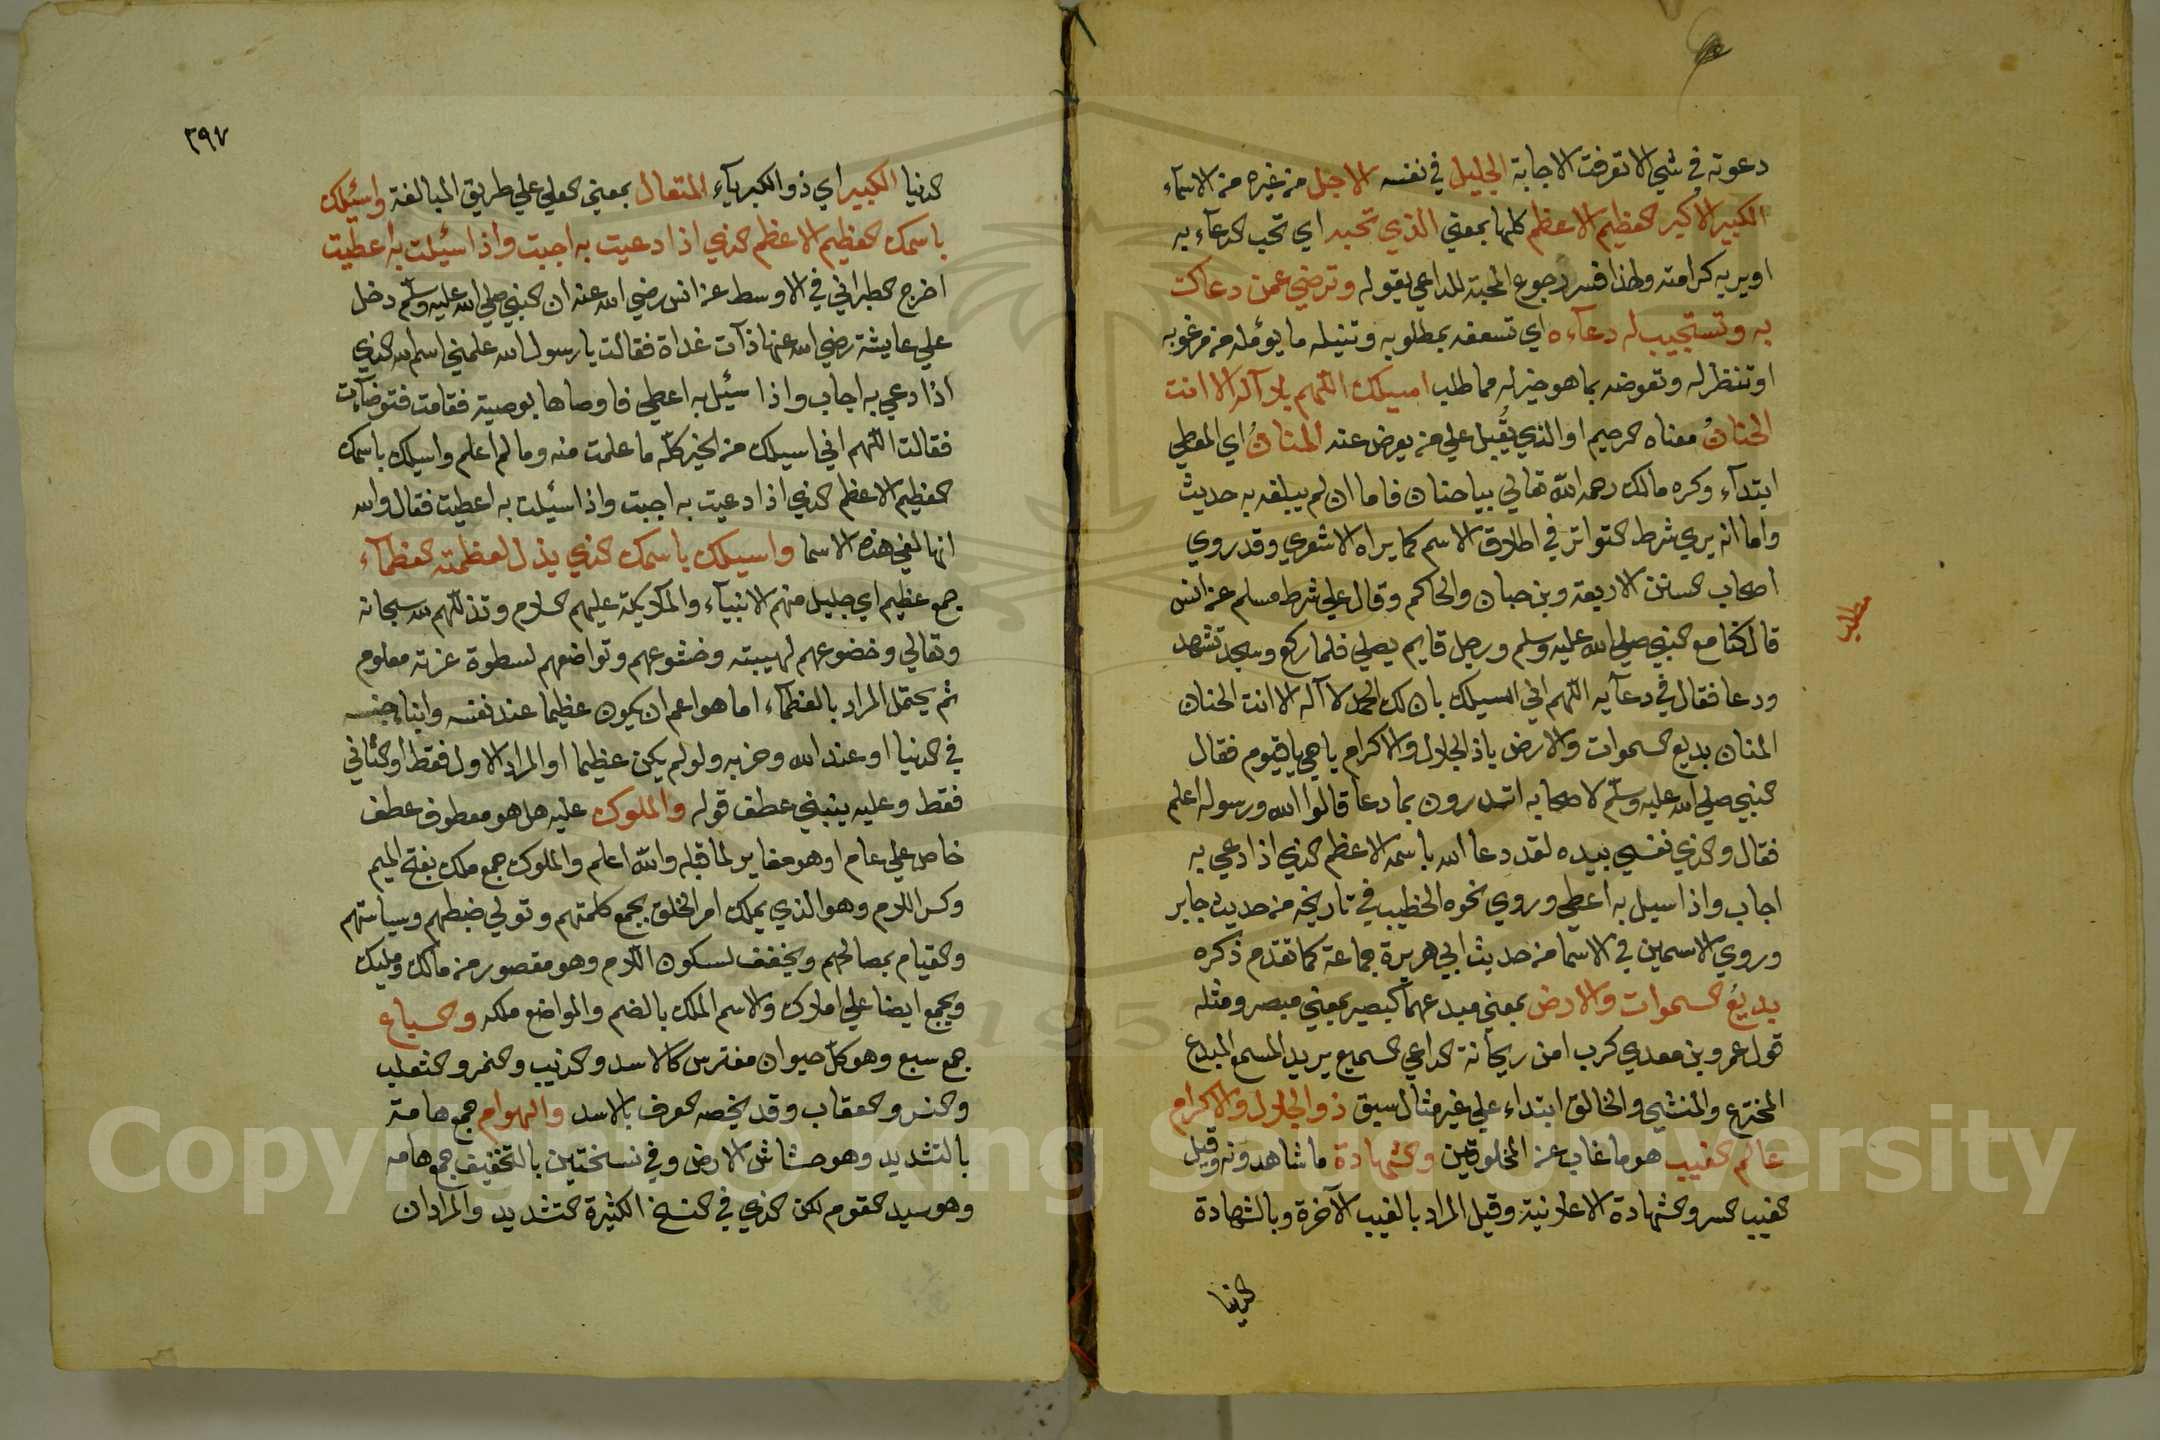 دعوته في شي الا تعرفت الاجابة الجليل في نفسه الاجل من غيره من الاسماء
الكبير الاكبر العظيم الاعظم كلها بمعني الذي تحبه اي تحب الدعاء به
او يريه كرامته ولهذا فسر رجوع المحبة للداعي بقوله وترضي عمن دعاك
به وتستجيب له دعاءه اي تسعفه بمطلوبه وتنيله ما يؤمله من مرغوبه
او تنظر له وتعوضه بما هو خير له مما طلب اسيلك اللهم بلا آله الا انت
الحنان معناه الرحيم او الذي يقبل علي من يعرض عنه المنان اي المعطي
ابتدآء وكره مالك رحمه الله تعالي بيا حنان فاما ان لم يبلغه به حديث
واما انه يري شرط التواتر في اطلاق الاسم كما يراه الاشعري وقد روي
اصحاب السنن الاربعة وبن حبان والحاكم وقال علي شرط مسلم عن انس
قال كنا مع النبي صلي الله عليه وسلم ورجل قايم يصلي فلما ركع وسجد تشهد
ودعا فقال في دعآيه اللهم اني اسيلك بان لك الحمد لا آله الا انت الحنان
المنان بديع السموات والارض ياذا الجلال والاكرام يا حي يا قيوم فقال
النبي صلي الله عليه وسلم لاصحابه اتدرون بما دعا قالوا الله ورسوله اعلم
فقال والذي نفسي بيده لقد دعا الله باسمه الاعظم الذي اذا دعي به
اجاب واذا سيل به اعطي وروي نحوه الخطيب في تاريخه من حديث جابر
وروي الاسمين في الاسما من حديث ابي هريرة جماعة كما تقدم ذكره
بديع السموات والارض بمعني مبدعهما كبصير بمعني مبصر ومثله
قول عمرو بن معدي كرب امن ريحانة الداعي السميع يريد المسمع المبدع
المخترع والمنشي والخالق ابتداء علي غير مثال سبق ذو الجلال والاكرام
عالم الغيب هو ما غاب عن المخلوقين والشهادة ما شاهدونه وقيل
الغيب السر والشهادة الاعلانية وقيل المراد بالغيب الآخرة وبالشهادة
الدنيا
مطلب
٣٩٧
الدنيا الكبير اي ذو الكبريآء المتعال بمعني العلي علي طريق المبالغة واسئيلك
باسمك العظيم الاعظم الذي اذا دعيت به اجبت واذا سئيلت به اعطيت
اخرج الطبراني في الاوسط عن انس رضي الله عنه ان النبي صلي الله عليه وسلم دخل
علي عايشة رضي الله عنها ذآت غداة فقالت يا رسول الله علمني اسم الله الذي
اذا دعي به اجاب واذا سئيل به اعطي فاوصاها بوصية فقامت فتوضآت
فقالت اللهم اني اسيلك من الخير كله ما علمت منه وما لم اعلم واسيلك باسمك
العظيم الاعظم الذي اذا دعيت به اجبت واذا سئيلت به اعطيت فقال والله
انها لفي هذه الاسما واسيلك باسمك الذي يذل لعظمته العظمآء
جمع عظيم اي جليل منهم الانبيآء والملآيكة عليهم السلام وتذللهم لله سبحانه
وتعالي وخضوعهم لهيبته وخشوعهم وتواضعهم لسطوة عزته معلوم
ثم يحتمل المراد بالعظمآء اما هو اعم ان يكون عظيما عند نفسه وابناء جنسه
في الدنيا او عند الله وحزبه ولو لم يكن عظيما او المراد الاول فقط او الثاني
فقط وعليه ينبني عطف قوله والملوك عليه هل هو معطوف عطف
خاص علي عام او هو مغاير لما قبله والله اعلم والملوك جمع ملك بفتح الميم
وكسر اللام وهو الذي يملك امر الخلق بجمع كلمتهم وتولي ضبطهم وسياستهم
والقيام بمصالحهم ويخفف لسكون اللام وهو مقصور من مالك ومليك
ويجمع ايضا علي املاك والاسم الملك بالضم والمواضع ملكه والسباع
جمع سبع وهو كل حيوان مفترس كالاسد والذيب والنمر والثعلب
والنسر والعقاب وقد يخصه العرف بالاسد والهوام جمع هامة
بالتشديد وهو حشاش الارض وفي نسختين بالتخفيف جمع هامه
وهو سيد القوم لكن الذي في النسخ الكثيرة التشديد والمراد ان